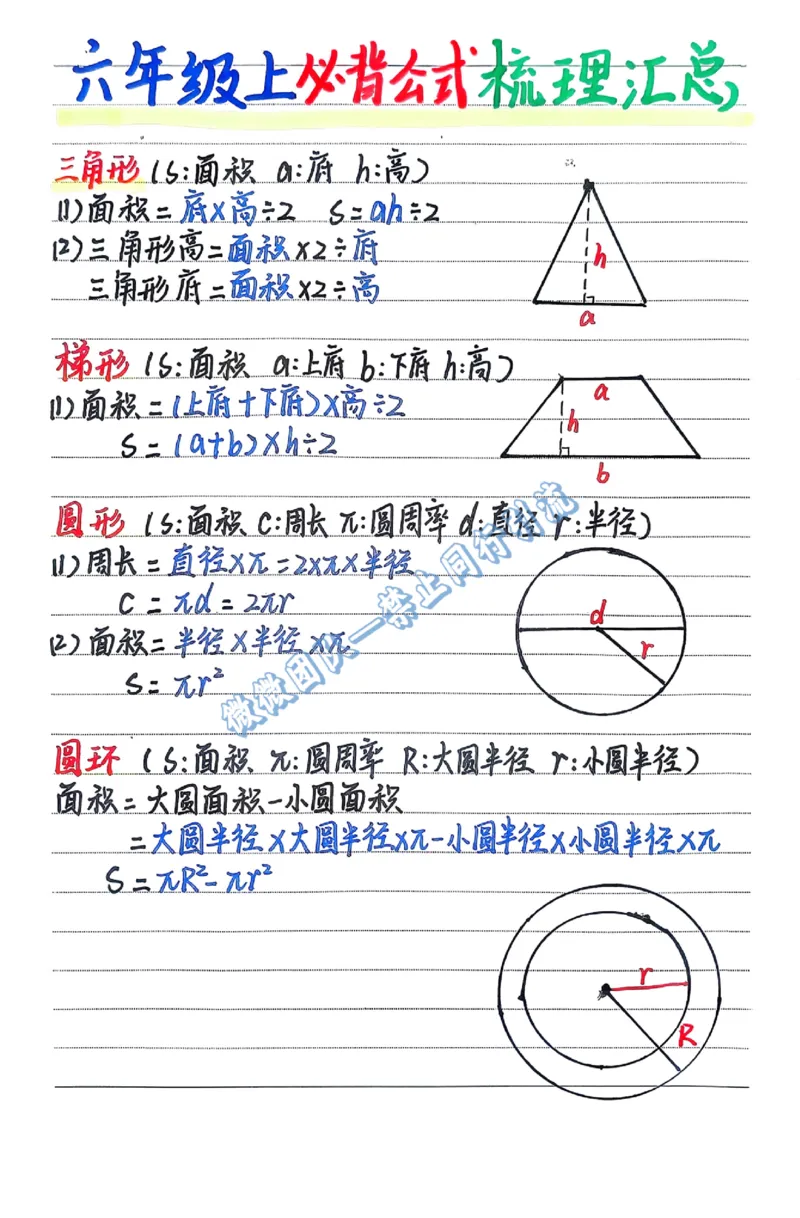 六年级上必背公式梳理汇总
三角形(S:面积 a:底 h:高)
(1)面积=底×高÷2 S=ah÷2
(2)三角形高=面积×2÷底
三角形底=面积×2÷高
h
a
梯形(S:面积 a:上底 b:下底 h:高)
(1)面积=(上底+下底)×高÷2
S=(a+b)×h÷2
a
h
b
圆形(S:面积 C:周长 π:圆周率 d:直径 r:半径)
(1)周长=直径×π=2×π×半径
C=πd=2πr
(2)面积=半径×半径×π
S=πr²
d
r
微微团队一禁止同行引流
圆环(S:面积 π:圆周率 R:大圆半径 r:小圆半径)
面积=大圆面积-小圆面积
=大圆半径×大圆半径×π-小圆半径×小圆半径×π
S=πR²-πr²
r
R